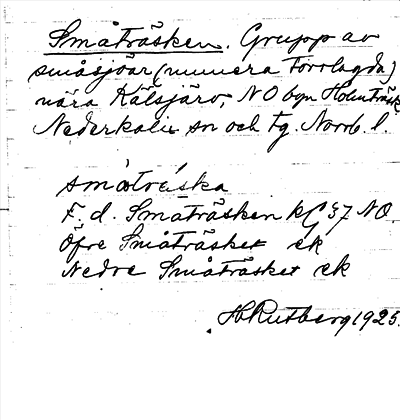 Småträsken. Grupp av
småsjöar (numera torrlagda)
nära Kälsjärv, NO byn Holmträsk
Nederkalix sn och tg. Norrb. l.
småtrȧ́ska
F. d. Småträsken kG 37 NO.
Öfre Småträsket ek
Nedre Småträsket ek
H Rutberg 1925.